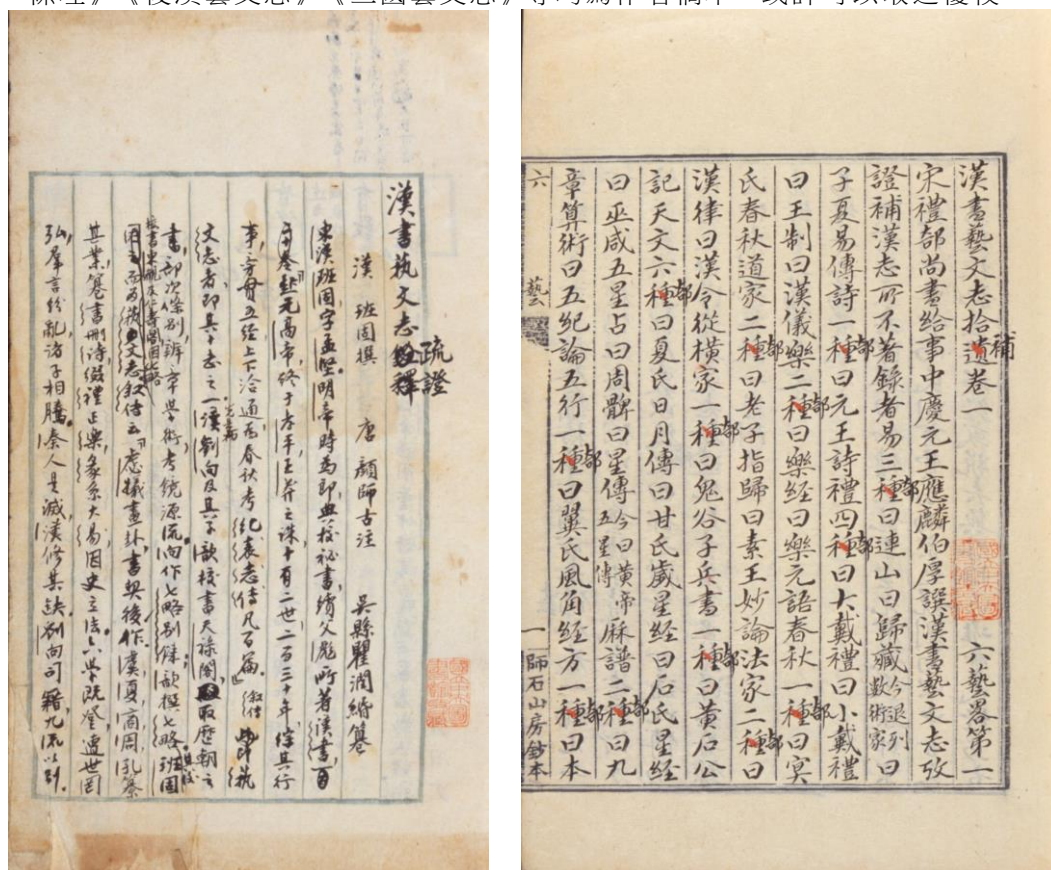 條理》《後漢藝文志》《三國藝文志》等均為作者稿本，或許可以取之復校
漢書藝文志
疏證
漢 班固撰 唐 顏師古注 吳縣瞿潤緡纂
東漢班固字孟堅明帝時為郎典校秘書續父彪所著漢書
元高帝終于孝平王莽之誅十有二世二百三十年綜其行
事旁貫五經上下洽通為春秋考紀表志傳凡百篇
文志者即其十志之一讀劉向及其子歆校書天祿閣取歷朝之
書部次條別辨章學術考鏡源流向作七略別錄歆撰七略班固
文志敘傳云虙羲畫卦書契後作虞夏商周孔纂
其業纂書刪詩綴禮正樂彖系大易因史立法六學既登遭世罔
弘羣言紛亂諸子相騰秦人是滅漢修其缺劉向司籍九流以別
漢書藝文志拾遺卷一 六藝畧第一
補
宋禮部尚書給事中慶元王應麟伯厚譔漢書藝文志攷
證補漢志所不著錄者易三種部曰連山曰歸藏今退列數術家曰
子夏易傳詩一種部曰元王詩禮四種部曰大戴禮曰小戴禮
曰王制曰漢儀樂二種部曰樂經曰樂元語春秋一種部曰冥
氏春秋道家二種部曰老子指歸曰素王妙論法家二種部曰
漢律曰漢令從橫家一種部曰鬼谷子兵書一種部曰黃石公
記天文六種部曰夏氏日月傳曰甘氏歲星經曰石氏星經
曰巫咸五星占曰周髀曰星傳今曰黃帝五星傳厤譜二種部曰九
章算術曰五紀論五行一種部曰翼氏風角經方一種部曰本
六 藝 一 師石山房鈔本